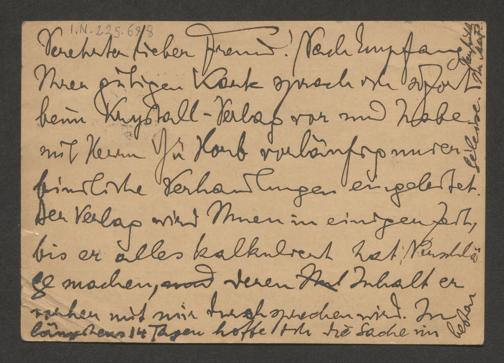 I.N. 225.688
Verehrter lieber Freund! Nach Empfang
Ihrer gütigen Karte sprach ich sofort
beim Krystall-Verlag vor und habe
mit Herrn Horb vorläufig unver-
bindliche Verhandlungen eingeleitet.
Der Verlag wird Ihnen in einiger Zeit,
bis er alles kalkuliert hat, Vorschlä
ge machen, deren Inhalt er
vorher mit mir durchsprechen wird. In
längstens 14 Tagen hoffe ich die Sache im
besten